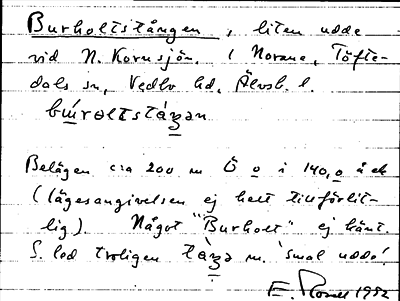 Burholtstången, liten udde
vid N. Kornsjön. i Norane, Töfte-
dals sn, Vedbo hd, Älvsb. l.
Belägen c:a 200 m Ö o i 140,0 å ek
(lägesangivelsen ej helt tillförlit-
lig). Något "Burholt" ej känt.
S. led troligen tånge m. 'smal udde'.
E. 1952